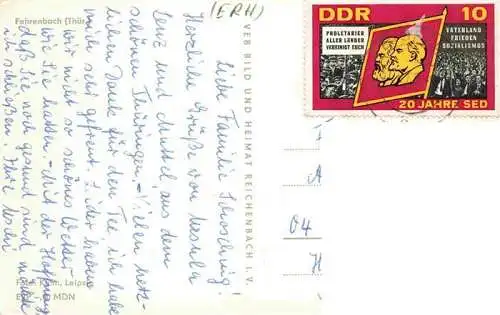 Fehrenbach (Thür
(ERH)
Liebe Familie
Herzliche Grüße von
Lenz und Muttel, aus dem
schönen Thüringen. Vielen herz-
lichen Dank für den Tee ich habe
mich sehr gefreut. Leider haben
wir nicht so schönes Wetter
wie Sie hatten. Mit der Hoffnung
daß Sie noch gesund sind möchte
ich schließen. Ihre
Foto: Leipz
MDN
VEB BILD UND HEIMAT REICHENBACH I. V.
DDR 10
PROLETARIER
ALLER LÄNDER
VEREINIGT EUCH
VATERLAND
FRIEDEN
SOZIALISMUS
20 JAHRE SED
A
04
H